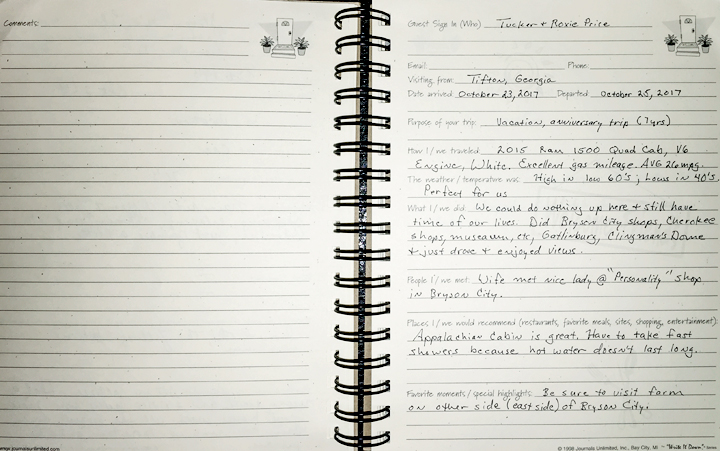 Comments:
www.journalsunlimited.com
Guest Sign In (Who) Tucker + Roxie Price
Email: Phone:
Visiting from: Tifton, Georgia
Date arrived October 23, 2017 Departed October 25, 2017
Purpose of your trip: Vacation, anniversary trip (7yrs)
How I/we traveled: 2015 Ram 1500 Quad Cab, V6
Engine, White. Excellent gas mileage. AVG 26mpg.
The weather / temperature was: High in low 60's; Lows in 40's.
Perfect for us
What I/we did: We could do nothing up here + still have
time of our lives. Did Bryson City shops, Cherokee
shops, museum, etc, Gatlinburg, Clingman's Dome
+ just drove + enjoyed views.
People I/we met: Wife met nice lady @ "Personality" shop
in Bryson City.
Places I/we would recommend (restaurants, favorite meals, sites, shopping, entertainment):
Appalachian Cabin is great. Have to take fast
showers because hot water doesn't last long.
Favorite moments / special highlights: Be sure to visit farm
on other side (east side) of Bryson City.
© 1998 Journals Unlimited, Inc., Bay City, MI - "Write It Down!" Series